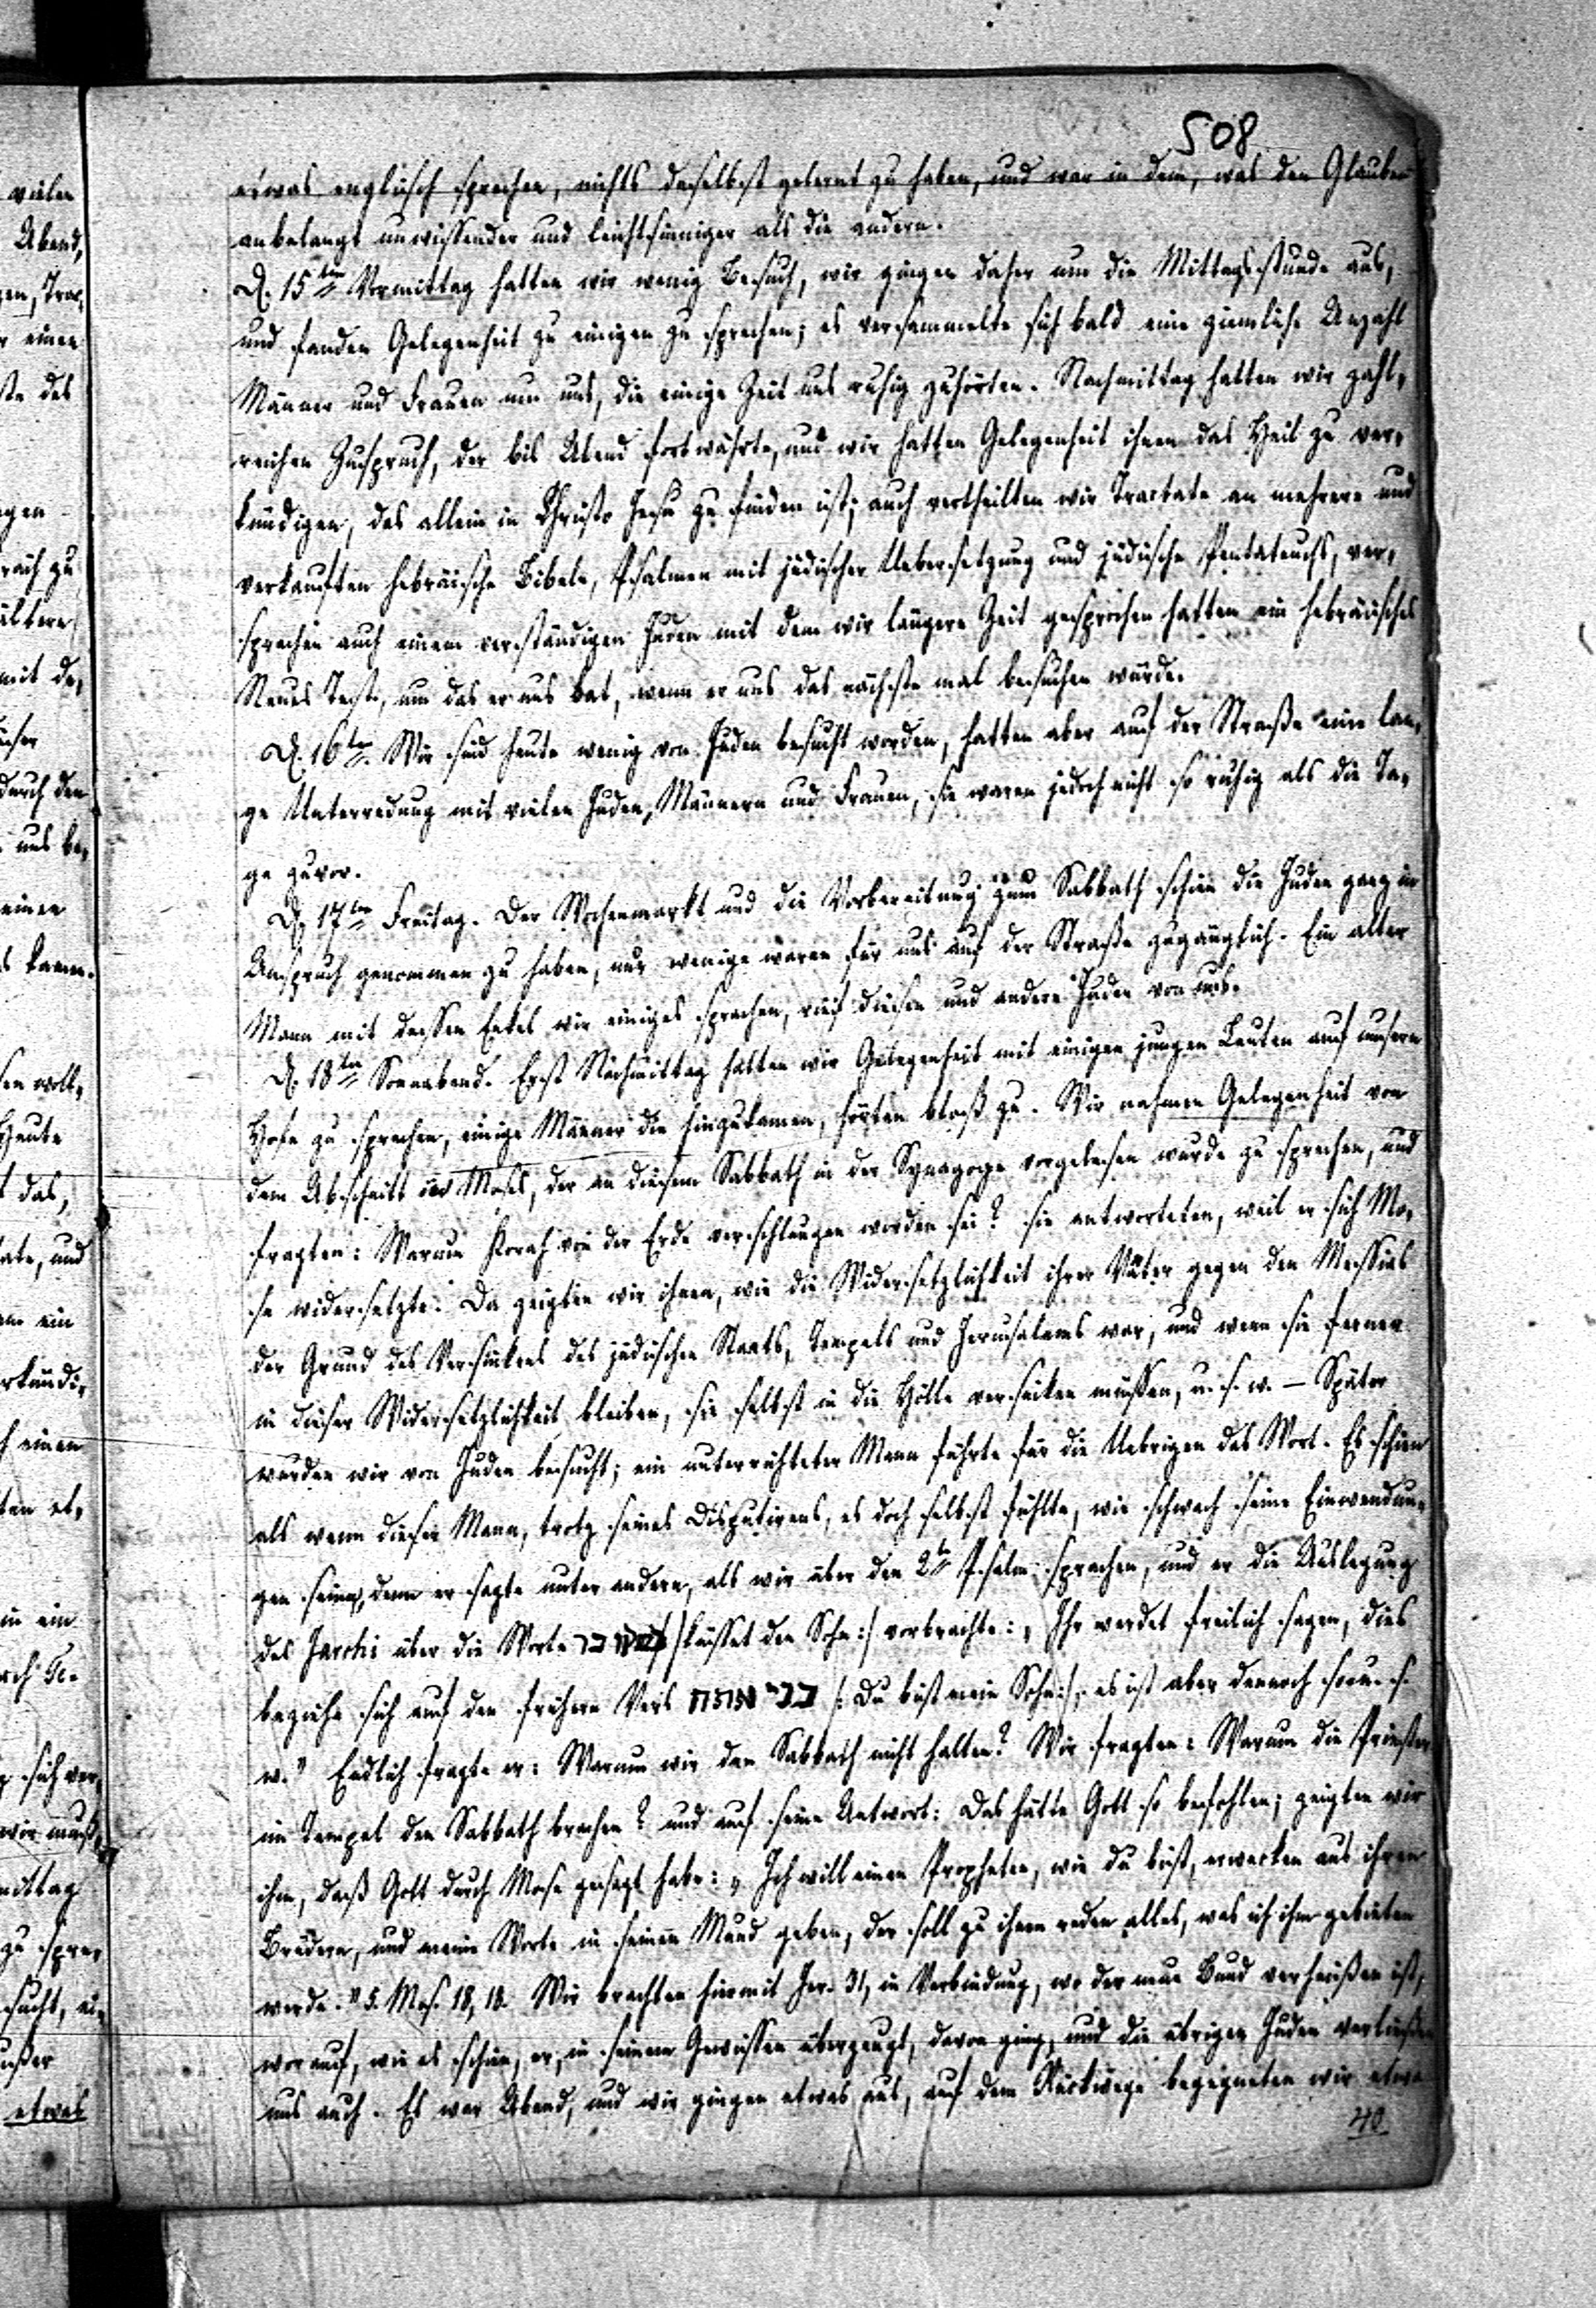 508
etwas englisch sprechen, nichts daselbst gelernt zu haben, und war in dem, was den Glauben
anbelangt unwissender und leichtsinniger als die andern.
D. 15ten Vormittag hatten wir wenig Besuch, wir gingen daher um die Mittagsstunde aus,
und fanden Gelegenheit zu einigen zu sprechen; es versammelte sich bald eine ziemliche Anzahl
Männer und Frauen um uns, die einige Zeit uns ruhig zuhörten. Nachmittag hatten wir zahl,
reichen Zuspruch, der bis Abend fortwährte, und wir hatten Gelegenheit ihnen das Heil zu ver,
kündigen, das allein in Christo Jesu zu finden ist; auch vertheilten wir Tractate an mehrere und
verkauften hebräische Bibeln, Psalmen mit jüdischer Uebersetzung und jüdische Pentateuchs, ver,
sprachen auch einem verständigen Juden mit dem wir längere Zeit gesprochen hatten ein hebräisches
Neues Test., um das er uns bat, wenn er uns das nächste mal besuchen würde.
D. 16ten. Wir sind heute wenig von Juden besucht worden, hatten aber auf der Straße eine lan,
ge Unterredung mit vielen Juden, Männern und Frauen, sie waren jedoch nicht so ruhig als die Ta,
ge zuvor.
D. 17ten Freitag. Der Wochenmarkt und die Vorbereitung zum Sabbath schien die Juden ganz in
Anspruch genommen zu haben, nur wenige waren für uns auf der Straße zugänglich. Ein alter
Mann mit dessen Enkel wir einiges sprachen, rief diesen und andere Juden von uns.
D. 18ten Sonnabend. Erst Nachmittag hatten wir Gelegenheit mit einigen jungen Leuten auf unserm
Hofe zu sprechen, einige Männer die hinzukamen, hörten bloß zu. Wir nahmen Gelegenheit von
dem Abschnitt Moses, der an diesem Sabbath in der Synagoge vorgelesen wurde zu sprechen, und
fragten: Warum Korah von der Erde verschlungen worden sei? sie antworteten, weil er sich Mo,
se widersetzte. Da zeigten wir ihnen, wie die Widersetzlichkeit ihrer Väter gegen den Messias
der Grund des Versinkens des jüdischen Staats, Tempels und Jerusalems war, und wenn sie ferner
in dieser Widersetzlichkeit bleiben, sie selbst in die Hölle versinken müssen, u. s. w. – Später
wurden wir von Juden besucht; ein unterrichteter Mann führte für die Uebrigen das Wort. Es schien
als wenn dieser Mann, trotz seines Disputirens, es doch selbst fühlte, wie schwach seine Einwendun,
gen seien, denn er sagte unter andern, als wir über den 2ten Psalm sprachen, und er die Auslegung
des Jarchi über die Worte נשקו בר /küsset den Sohn:/ vorbrachte: „Ihr werdet freilich sagen, dies
beziehe sich auf den frühern Vers בני אתה /: Du bist mein Sohn:/, es ist aber dennoch so u. s.
w." Endlich fragte er: Warum wir den Sabbath nicht halten? Wir fragten: Warum die Priester
im Tempel den Sabbath brachen? und auf seine Antwort: Das hätte Gott so befohlen; zeigten wir
ihm, daß Gott durch Mose gesagt habe: „Ich will einen Propheten, wie du bist, erwecken aus ihren
Brüdern, und meine Worte in seinen Mund geben, der soll zu ihnen reden alles, was ich ihm gebieten
werde." 5. Mos. 18, 18. Wir brachten hiermit Jer. 31, in Verbindung, wo der neue Bund verheißen ist,
worauf, wie es schien, er, in seinem Gewissen überzeugt, davon ging, und die übrigen Juden verließen
uns auch. Es war Abend, und wir gingen etwas aus, auf dem Rückwege begegneten wir etwa
40